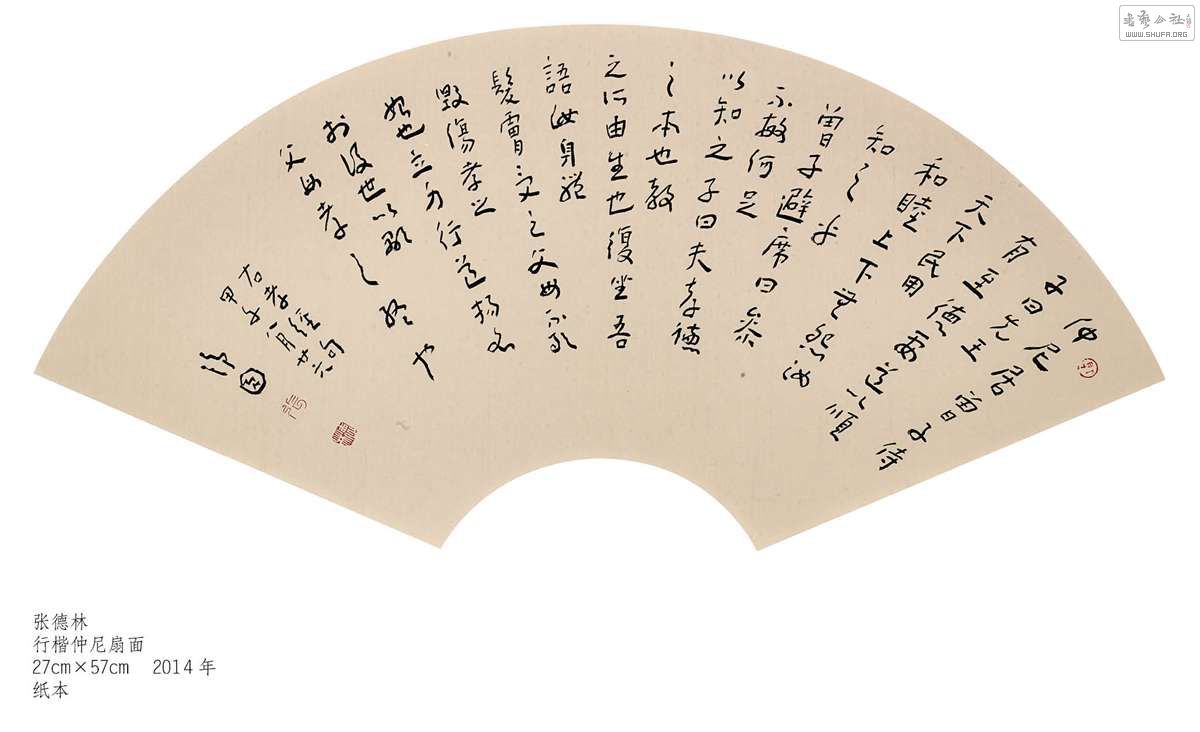 仲尼居曾子侍
子曰先王
有至德要道以順
天下民用
和睦上下無怨汝
知之乎
曾子避席曰參
不敏何足
以知之子曰夫孝德
之本也教
之所由生也復坐吾
語汝身體
髮膚受之父母不敢
毀傷孝之
始也立身行道揚名
於後世以顯
父母孝之終也
右孝經句
甲午一月廿六
WWW.SHUFA.ORG
张德林
行楷仲尼扇面
27cm×57cm 2014年
纸本